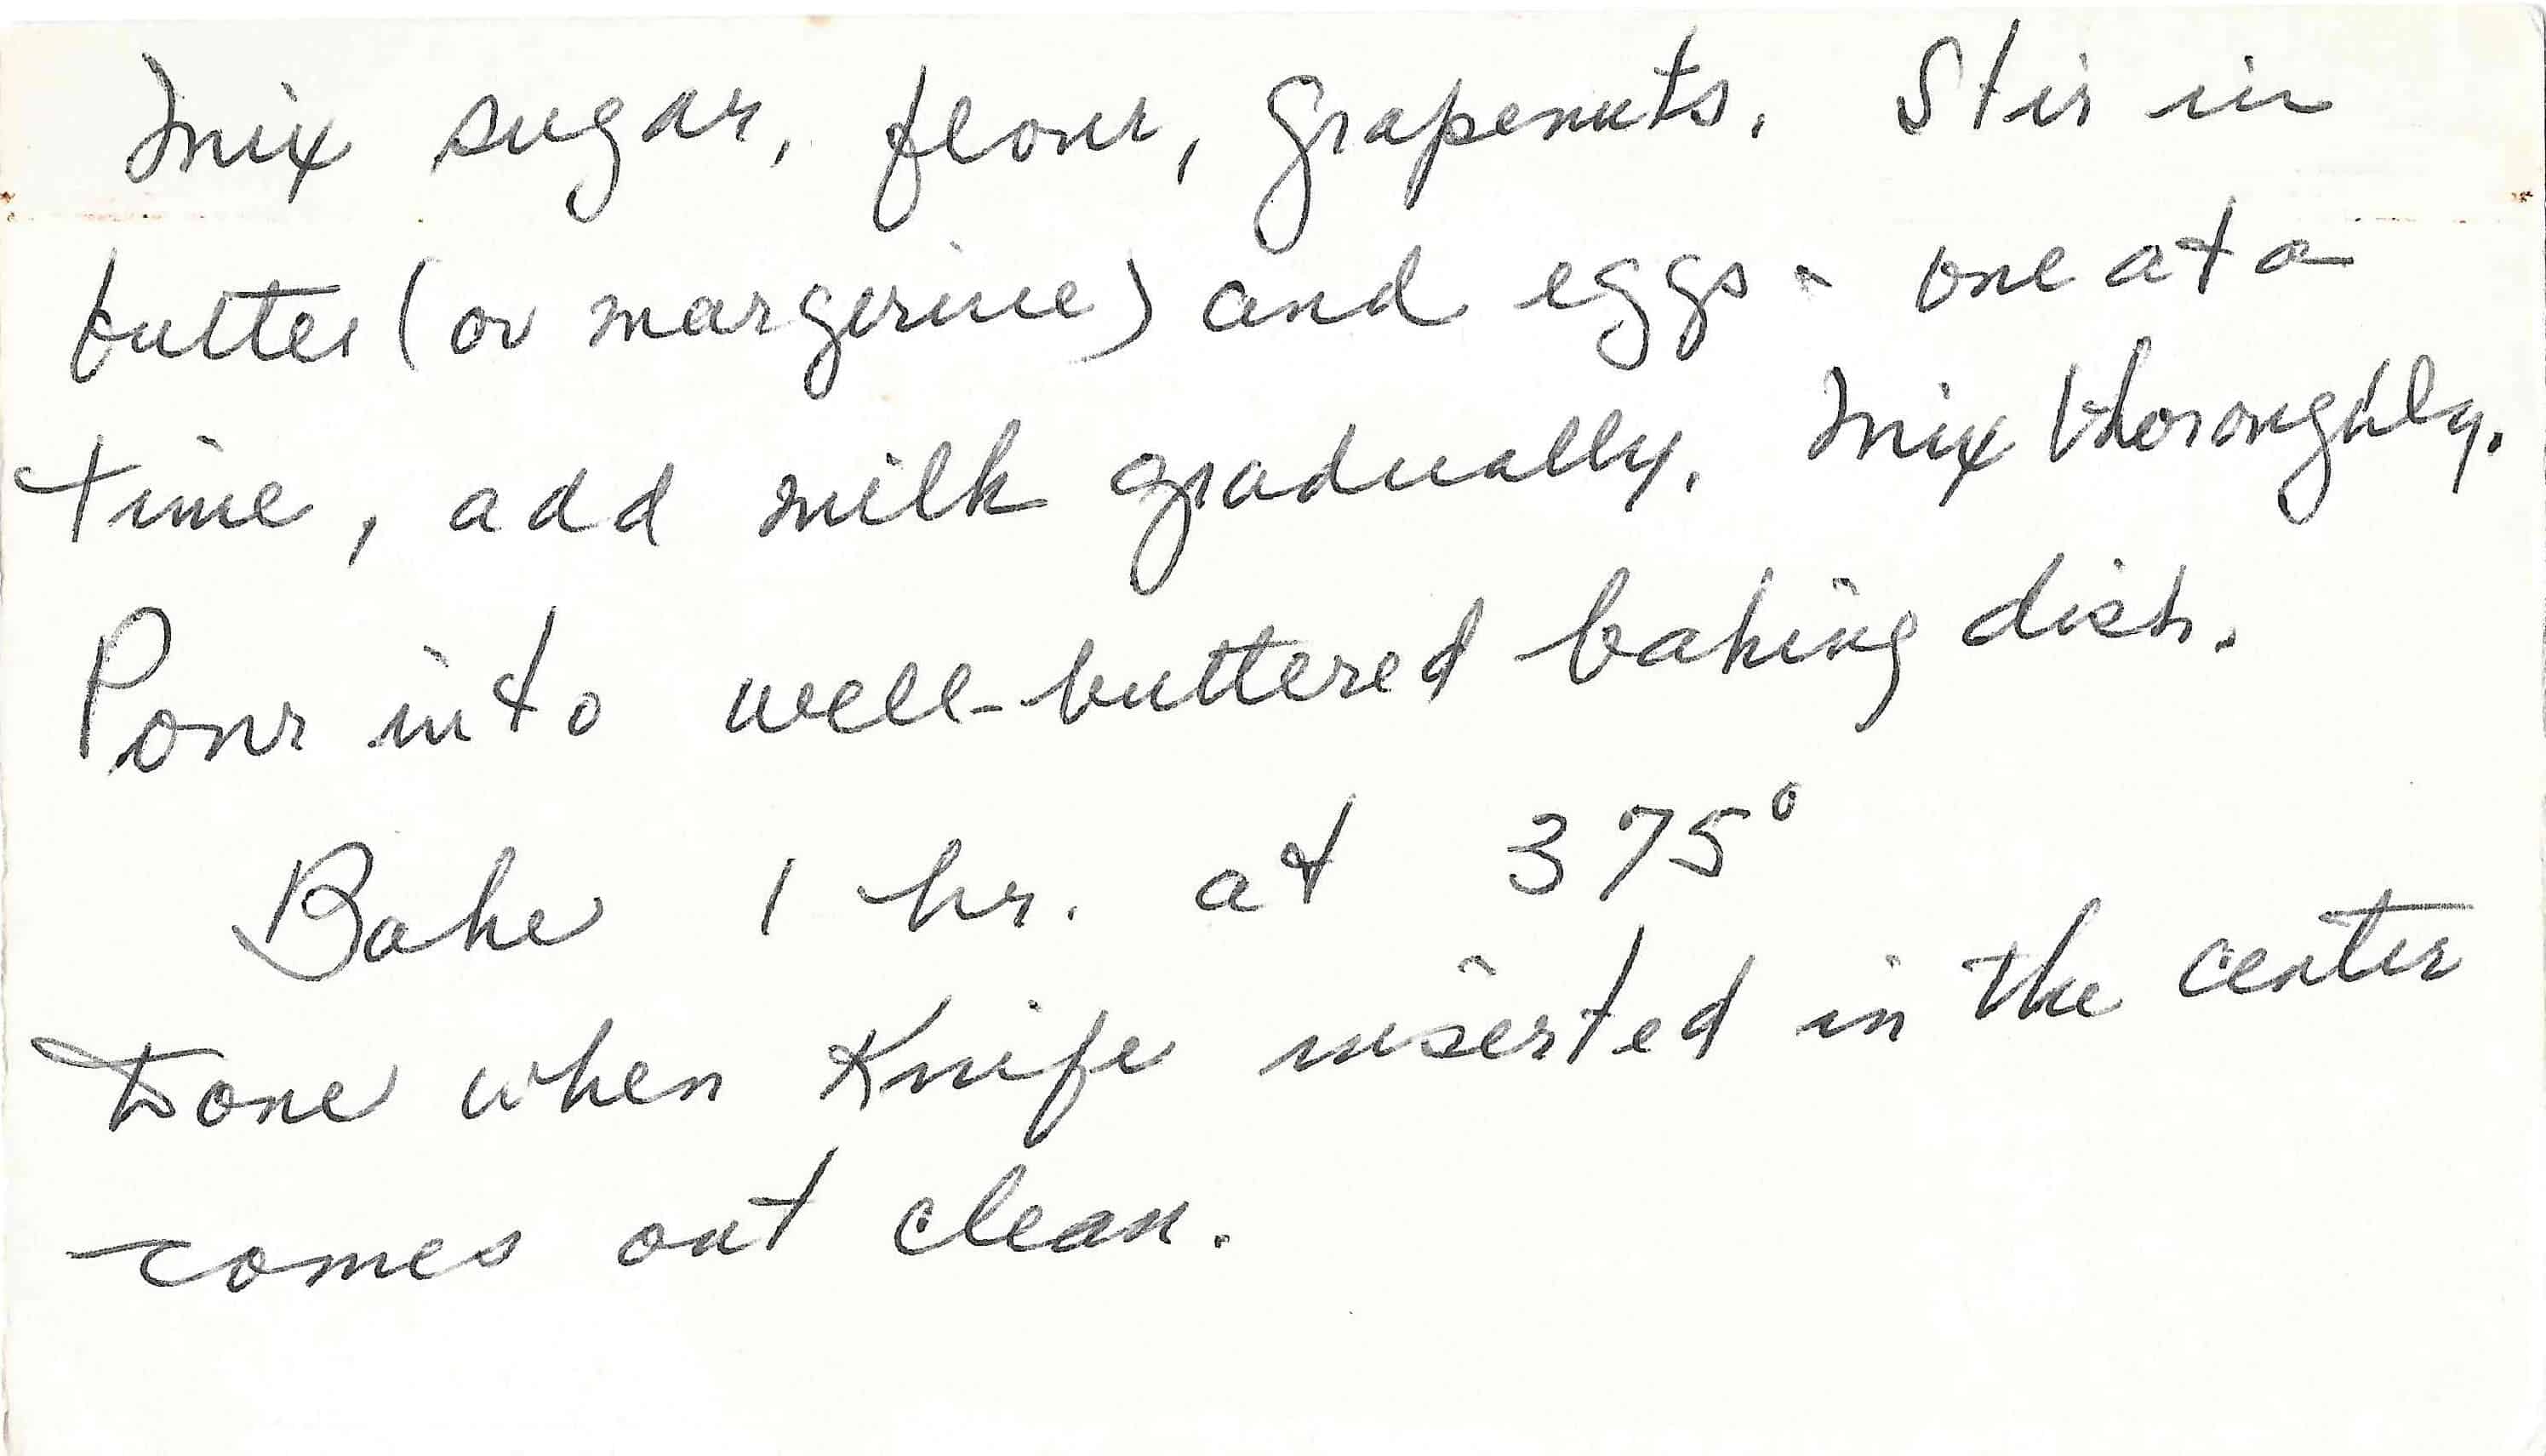 Mix sugar, flour, Grapenuts. Stir in
butter (or margerine) and eggs - one at a
time, add milk gradually. Mix thoroughly.
Pour into well-buttered baking dish.
Bake 1 hr. at 375°
Done when Knife inserted in the center
comes out clean.